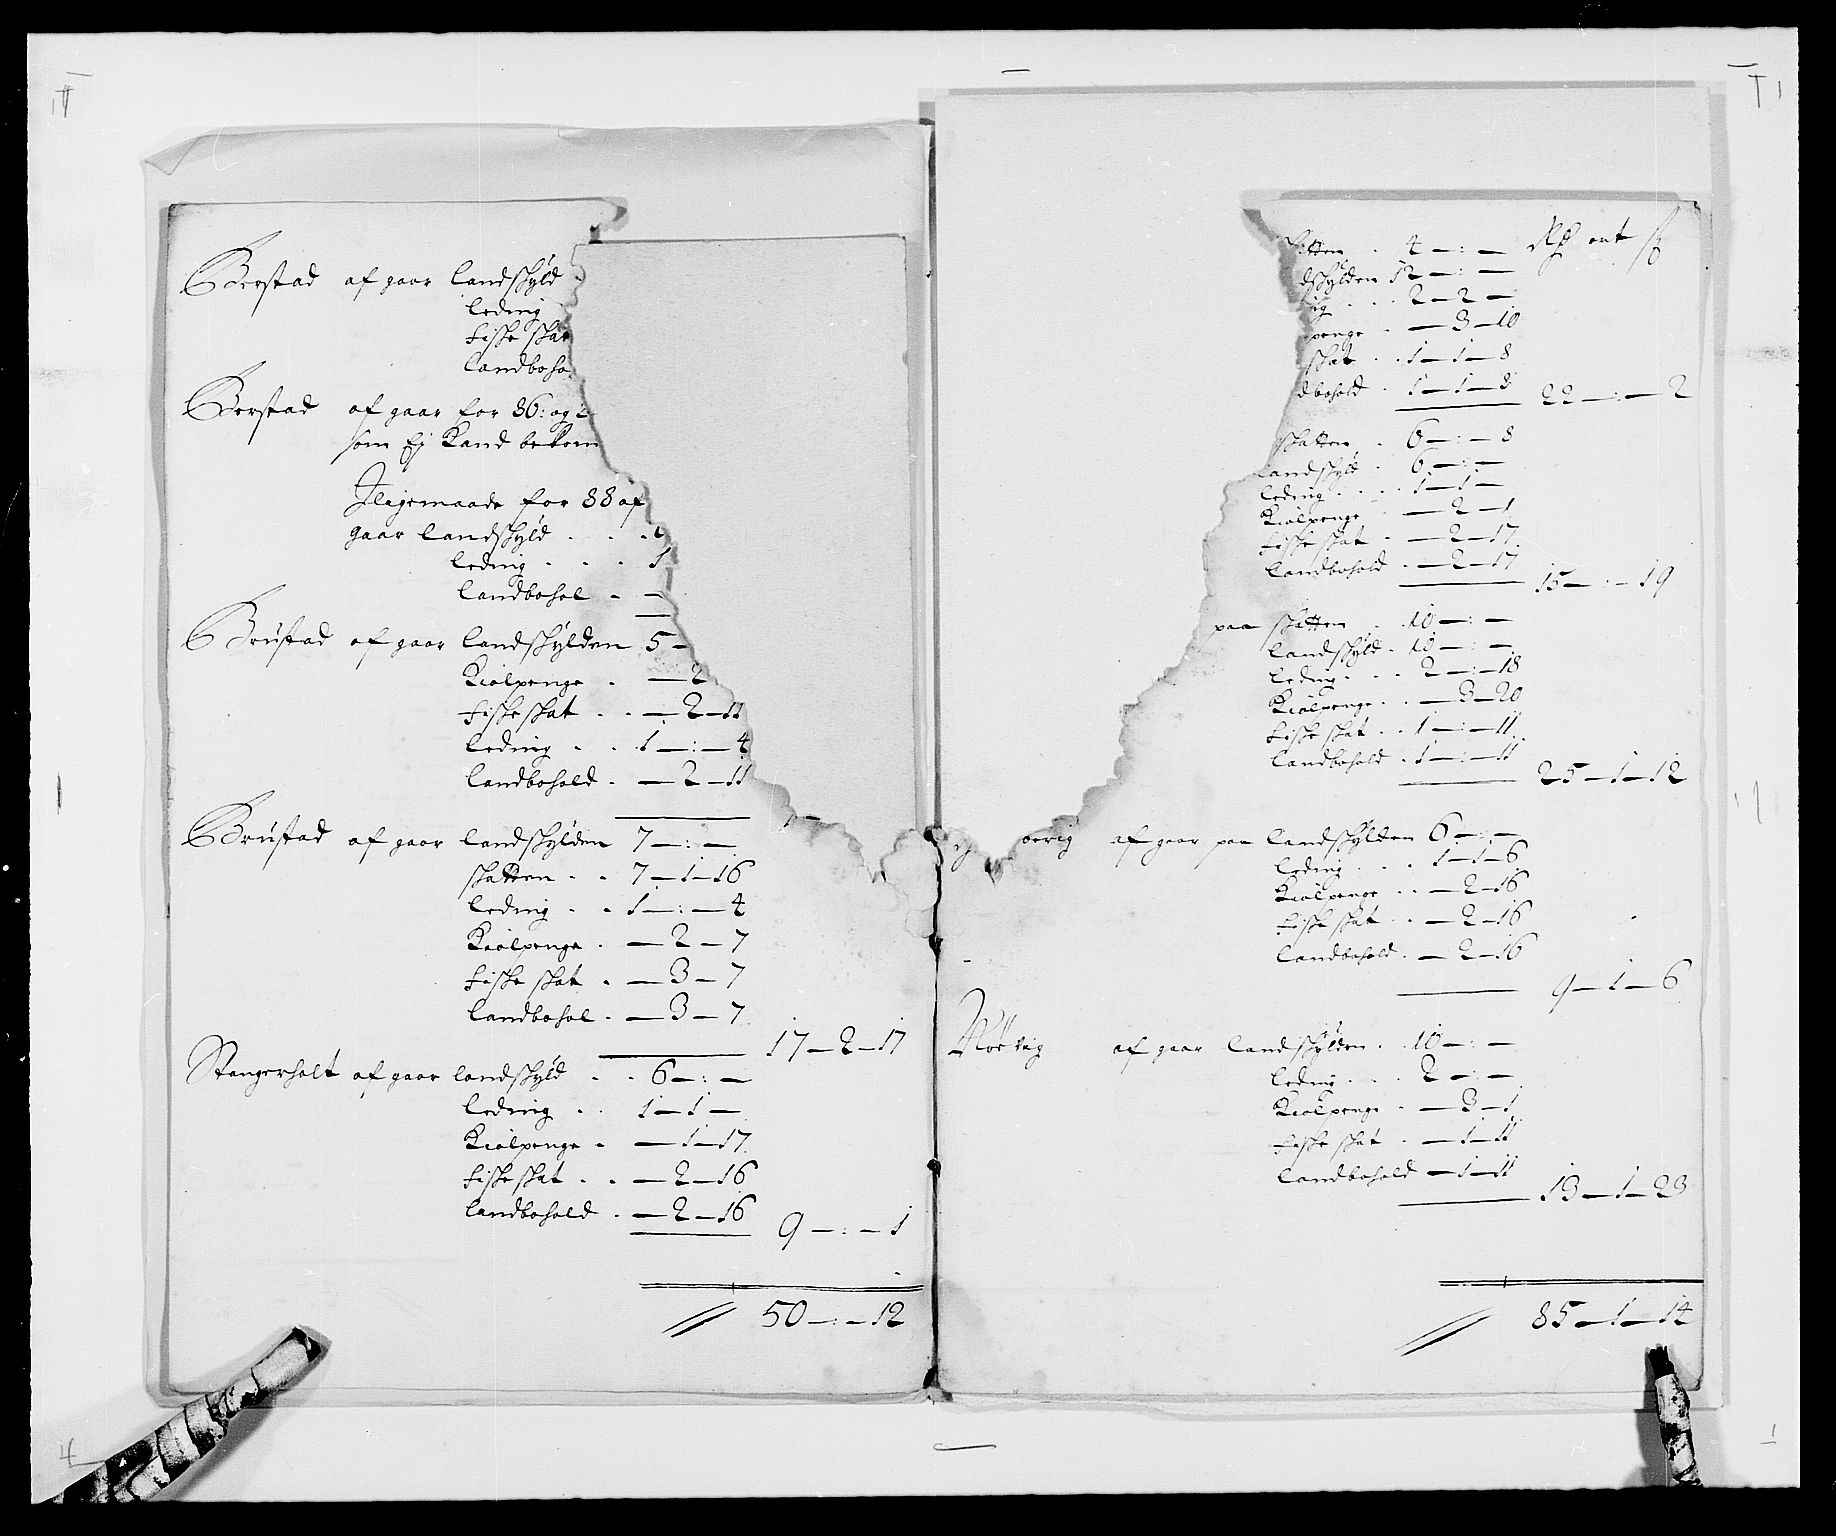 Berstad af gaar landschyld
leding
fische skat
landboho
Berstad af gaar for 86: og
som Ej Kand bekom
Jligemaade for 88 af
gaar landschyld . . .
leding . . . 1
landbohol . —
Brustad af gaar landschylden 5 —
Kiølpenge . — 2
fische skat . . — 2 — 11
leding . . 1 — : — 4
landbohold . — 2 — 11
Brustad af gaar landschylden 7 — : —
skatten . . 7 — 1 — 16
leding . . 1 — : — 4
Kiølpenge . — 2 — 7
fische skat . — 3 — 7
landbohol . — 3 — 7
17 — 2 — 17
Stangerholt af gaar landschyld . . 6 — : —
leding . . 1 — 1 —
Kiølpenge . — 1 — 17
fische skat . . — 2 — 16
landbohold . — 2 — 16
9 — : — 1
50 — : — 12
atten . 4 — : — Rd ort ß
dschylden 12 — : —
ng . . . 2 — 2 —
penge . — 3 — 10
skat . . 1 — 1 — 8
dbohold . 1 — 1 — 8
22 — : — 2
skatten . 6 — : — 8
landschyld . 6 — : —
leding . . . 1 — 1 —
Kiølpenge — 2 — 1
fische skat . — 2 — 17
landbohold . — 2 — 17
15 — : — 19
paa skatten . 10 — : —
landschyld . 10 — : —
leding . . . 2 — : — 18
Kiølpenge . . — 3 — 20
fische skat . . 1 — : — 11
landbohold . 1 — : — 11
25 — 1 — 12
oerig af gaar paa landschylden 6 — : —
leding . . 1 — 1 — 6
Kiølpenge . . — 2 — 16
fische skat . . — 2 — 16
landbohold . — 2 — 16
9 — 1 — 6
Nørvig af gaar landschylden . 10 — : —
leding . . . 2 — : —
Kiølpenge . — 3 — 1
fische skat . — 1 — 11
landbohold — 1 — 11
13 — 1 — 23
85 — 1 — 14